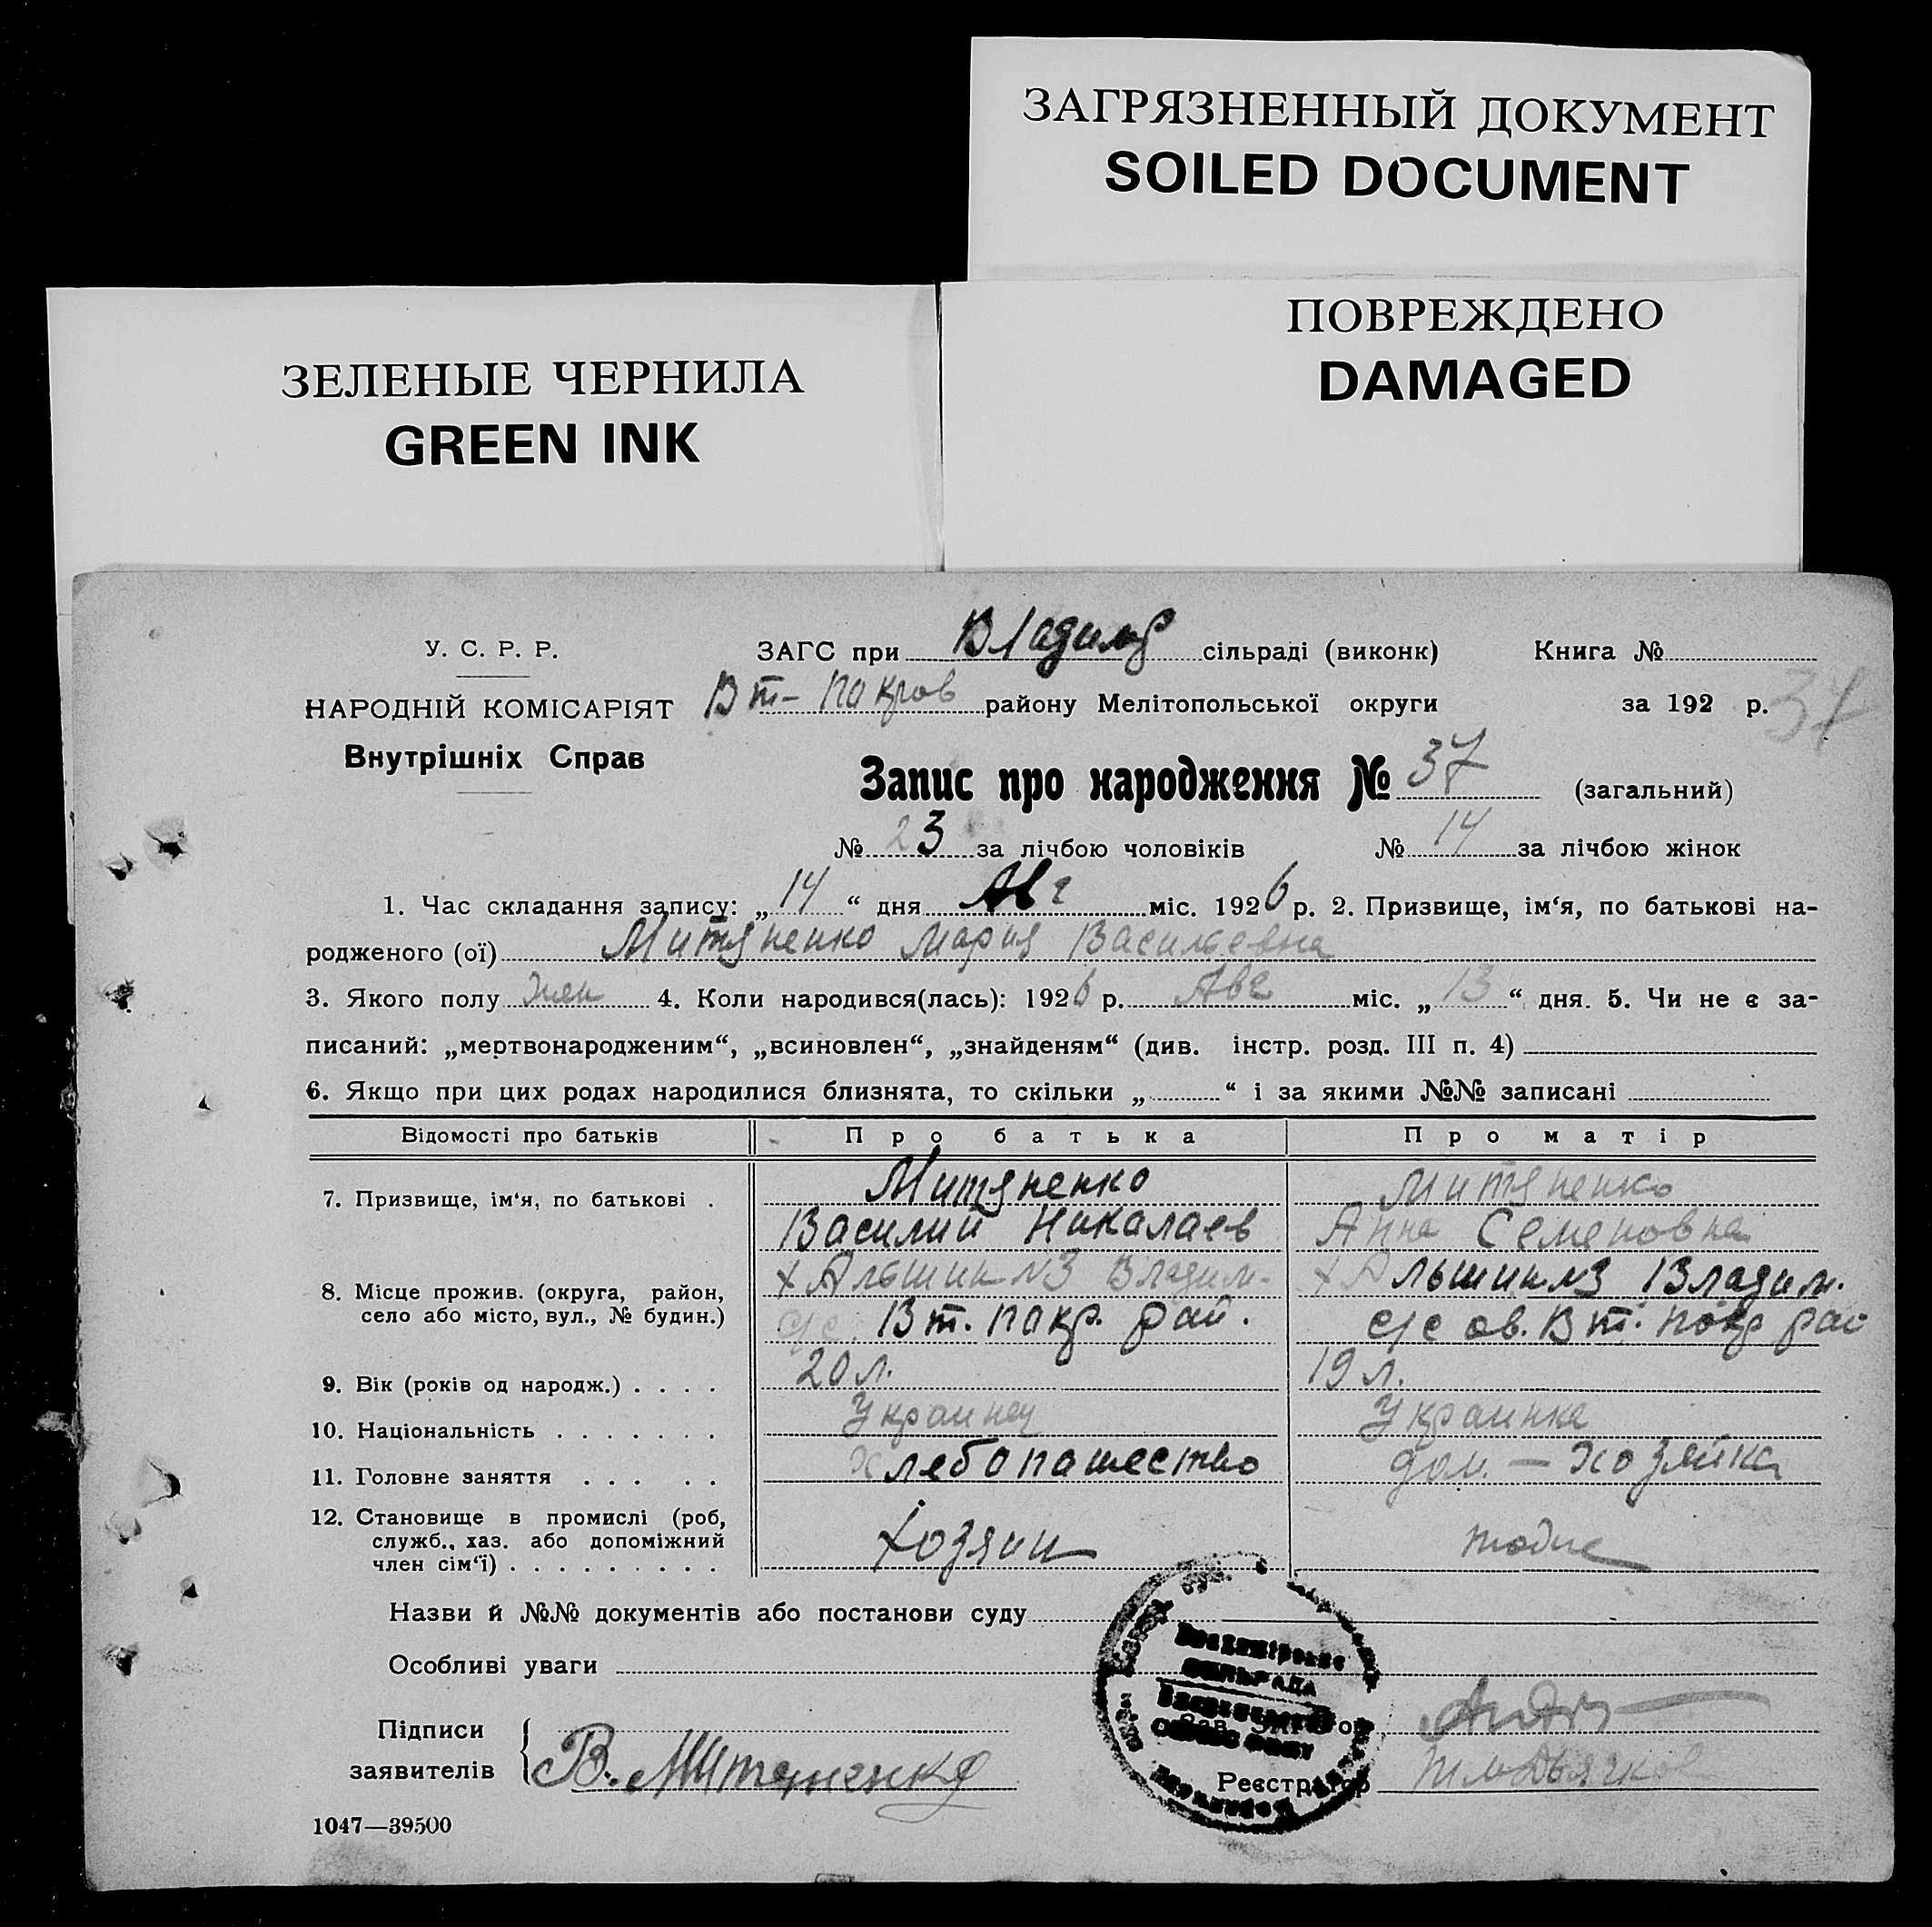 ЗАГРЯЗНЕННЫЙ ДОКУМЕНТ
SOILED DOCUMENT
ПОВРЕЖДЕНО
DAMAGED
ЗЕЛЕНЫЕ ЧЕРНИЛА
GREEN INK
У. С. Р. Р.
НАРОДНІЙ КОМІСАРІЯТ
Внутрішніх Справ
ЗАГС при Владимр сільраді (виконк) Книга №
Вт-Покров району Мелітопольської округи за 192 р. 37
Запис про народження № 37 (загальний)
№ 23 за лічбою чоловіків № 14 за лічбою жінок
1. Час складання запису: „14“ дня Авг міс. 1926 р. 2. Призвище, ім‘я, по батькові на-
родженого (ої) Митяненко Мария Васильевна
3. Якого полу жен 4. Коли народився(лась): 1926 р. Авг міс. „13“ дня. 5. Чи не є за-
писаний: „мертвонародженим“, „всиновлен“, „знайденям“ (див. інстр. розд. III п. 4)
6. Якщо при цих родах народилися близнята, то скільки „ “ і за якими №№ записані
Відомості про батьків Про батька Про матір
7. Призвище, ім‘я, по батькові . Митяненко Митяненко
Василий Никалаев Анна Семеновна
8. Місце прожив. (округа, район, х Альшин №3 Владим. х Альшин №3 Владим.
село або місто, вул., № будин.) с/с. Вт. покр. рай. с/с ов. Вт. покр рай
9. Вік (років од народж.) . . . . 20 л. 19 л.
10. Національність . . . . . . . Украинец Украинка
11. Головне заняття . . . . . Хлебопашество дом. — хозяйка
12. Становище в промислі (роб,
служб., хаз. або допоміжний
член сім‘ї) . . . . . . . . . Хозяин тоdже
Назви й №№ документів або постанови суду
Особливі уваги
Владимірівська
СІЛЬРАДА
Підписи
заявителів В. Митяненко
Реєстратор
1047—39500